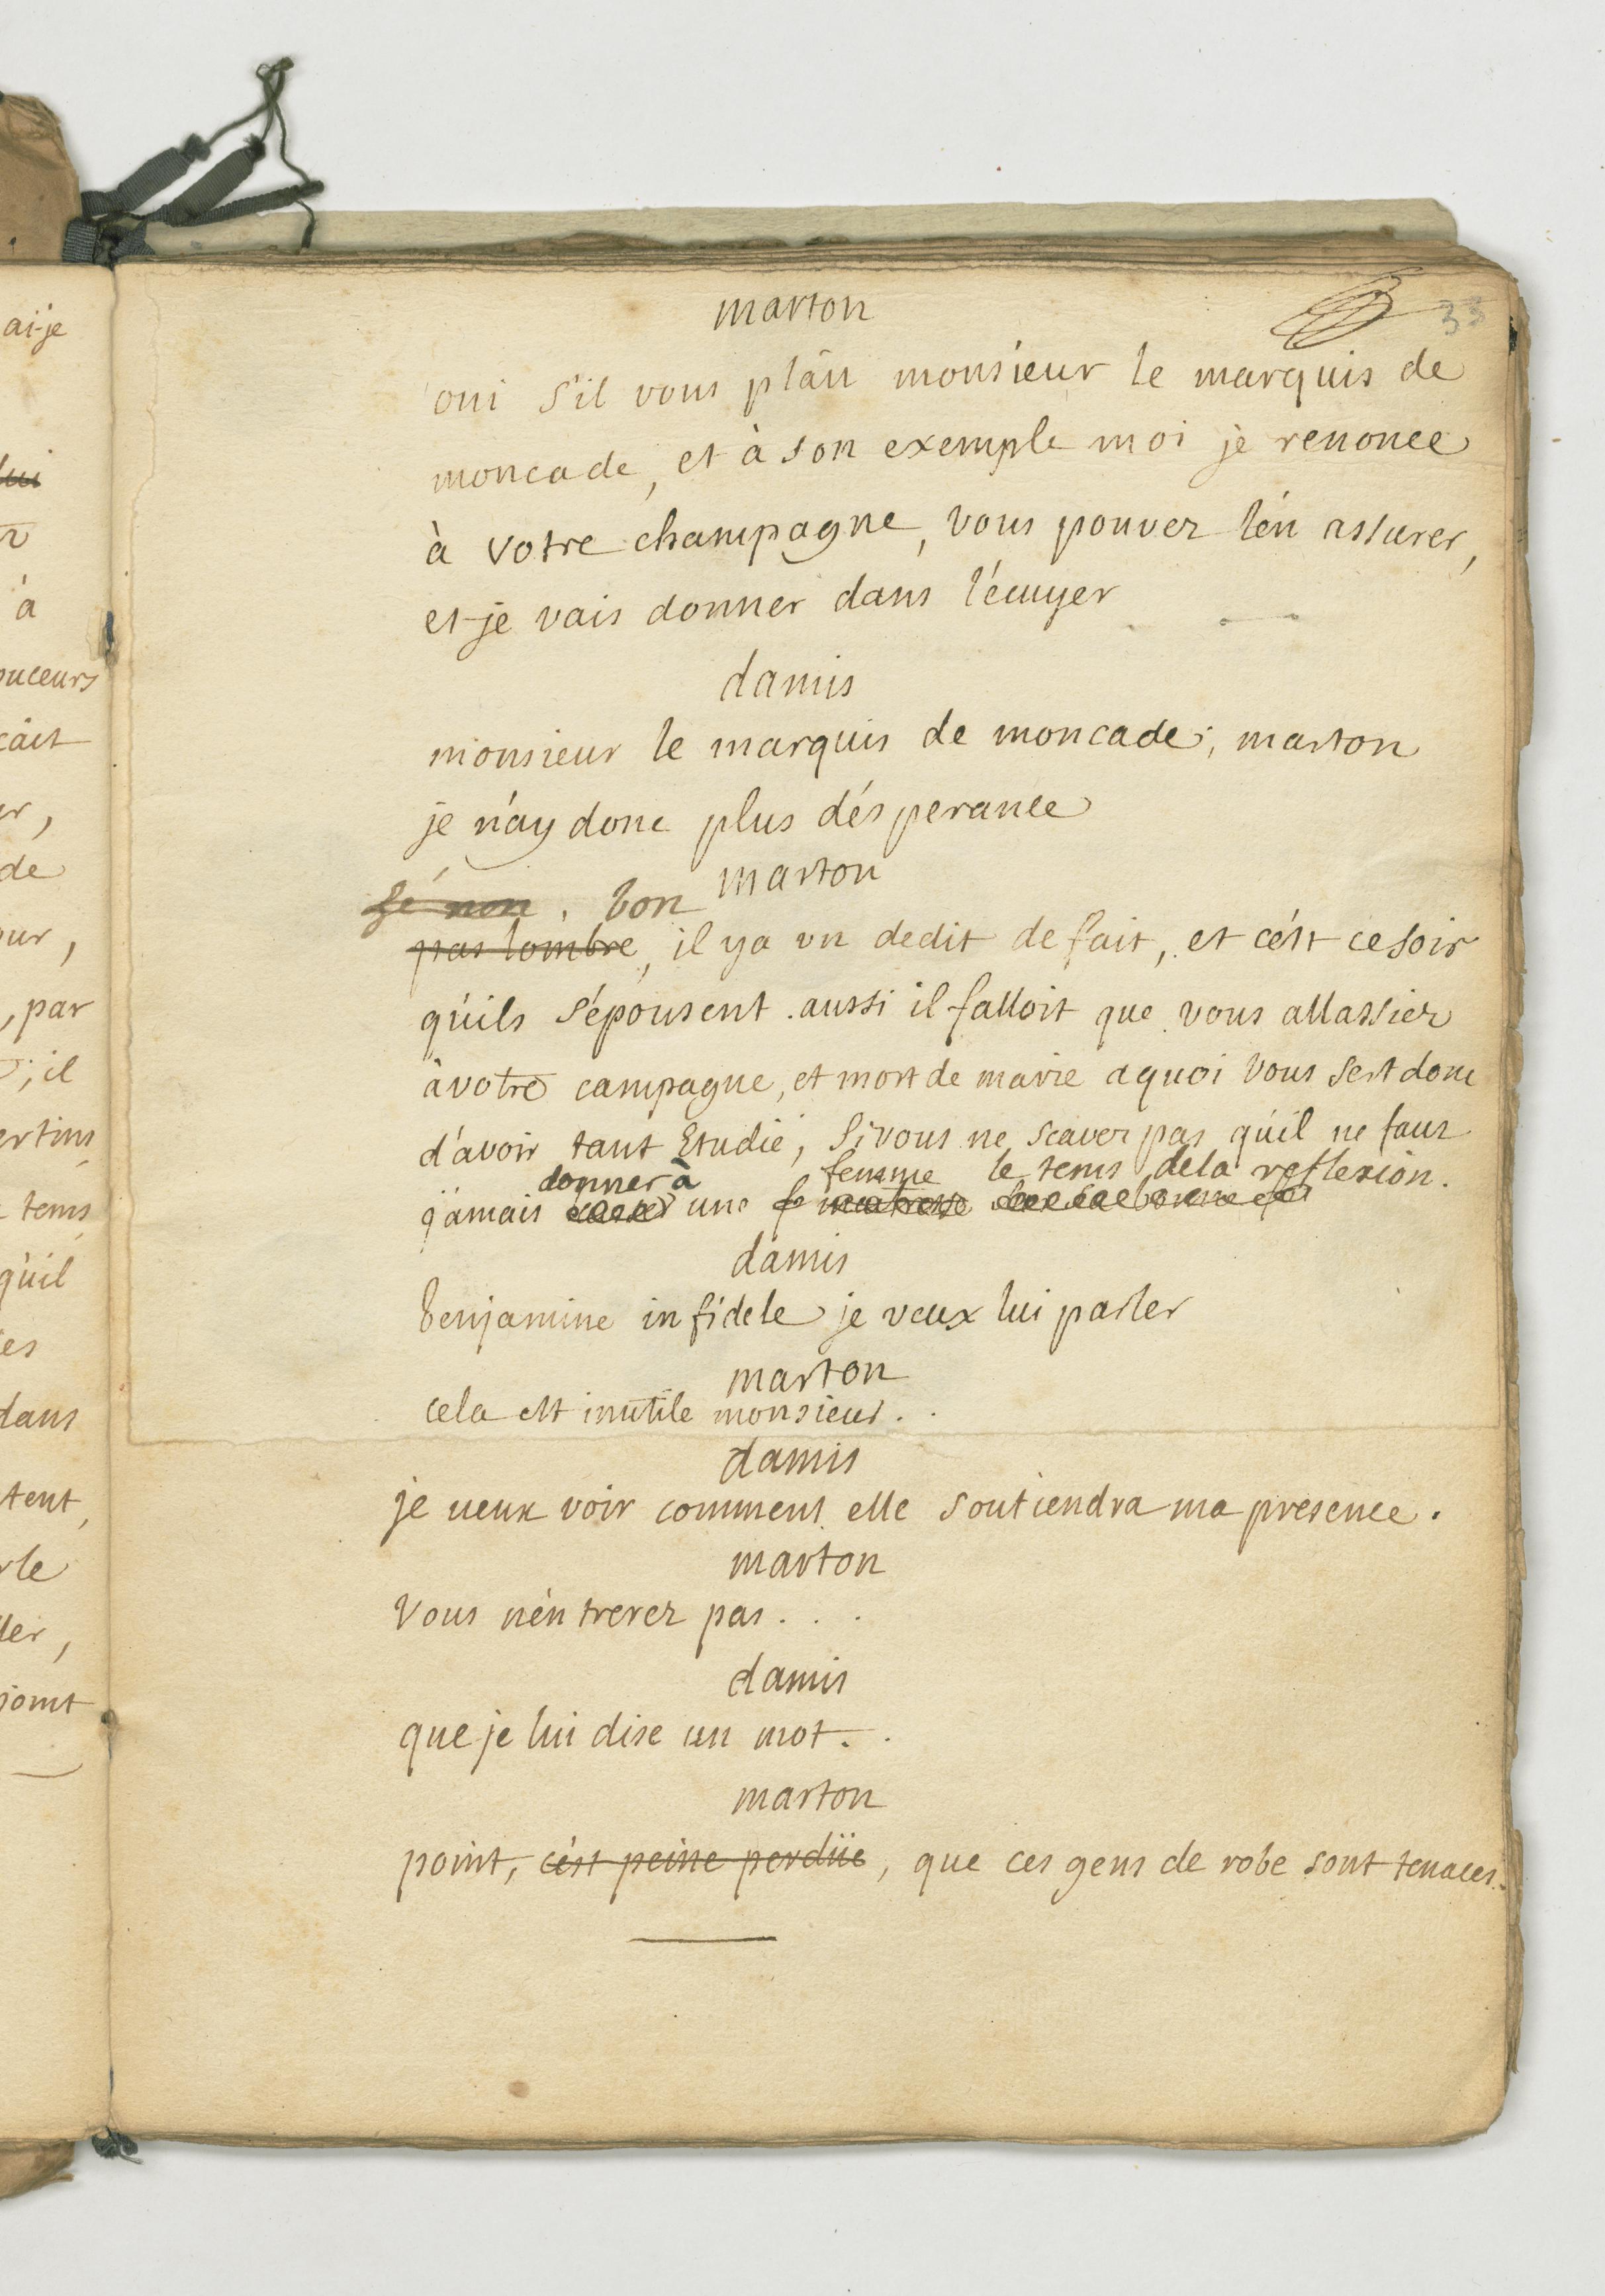 ai-je
lui
à
cait
de
, par
; il
tems
qu'il
dans
33
marton
oui s'il vous plâit monsieur le marquis de
moncade, et à son exemple moi je renonce
à votre champagne, vous pouvez l'én assurer,
et je vais donner dans l'écuyer
damis
monsieur le marquis de moncade, marton
je n'ay donc plus désperance
marton
hé non. bon
pas lombre, il ya un dedit de fait, et cést ce soir
qu'ils s'épousent. aussi il falloit que vous allassiez
à votre campagne, et mort de mavie a quoi vous sert donc
d'avoir tant Etudié, si vous ne scavez pas qu'il ne faut
donner à femme le tems dela reflexion.
jamais une maitresse
damis
benjamine infidele je veux lui parler
marton
cela est inutile monsieur..
damis
je veux voir comment elle soutiendra ma presence.
marton
vous n'éntrerez pas...
damis
que je lui dise un mot..
marton
point, cést peine perdüe, que ces gens de robe sont tenaces.